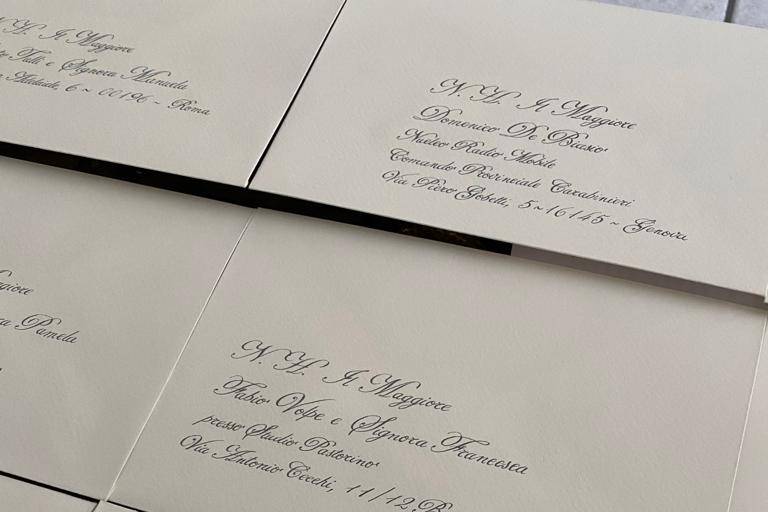 N. H. Il Maggiore
Tulli e Signora Manuela
Adelaide, 6 ~ 00196 ~ Roma
N. H. Il Maggiore
Domenico De Biasio
Nucleo Radio Mobile
Comando Provinciale Carabinieri
Via Piero Gobetti, 5 ~ 16145 ~ Genova
Pamela
N. H. Il Maggiore
Fabio Volpe e Signora Francesca
presso Studio Pastorino
Via Antonio Cecchi, 11/12 B